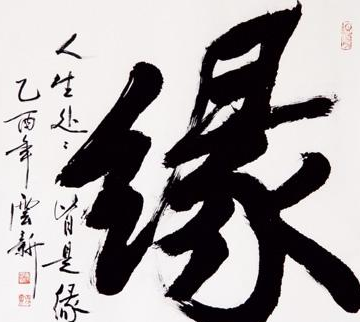 缘
人生处〻皆是缘
乙酉年